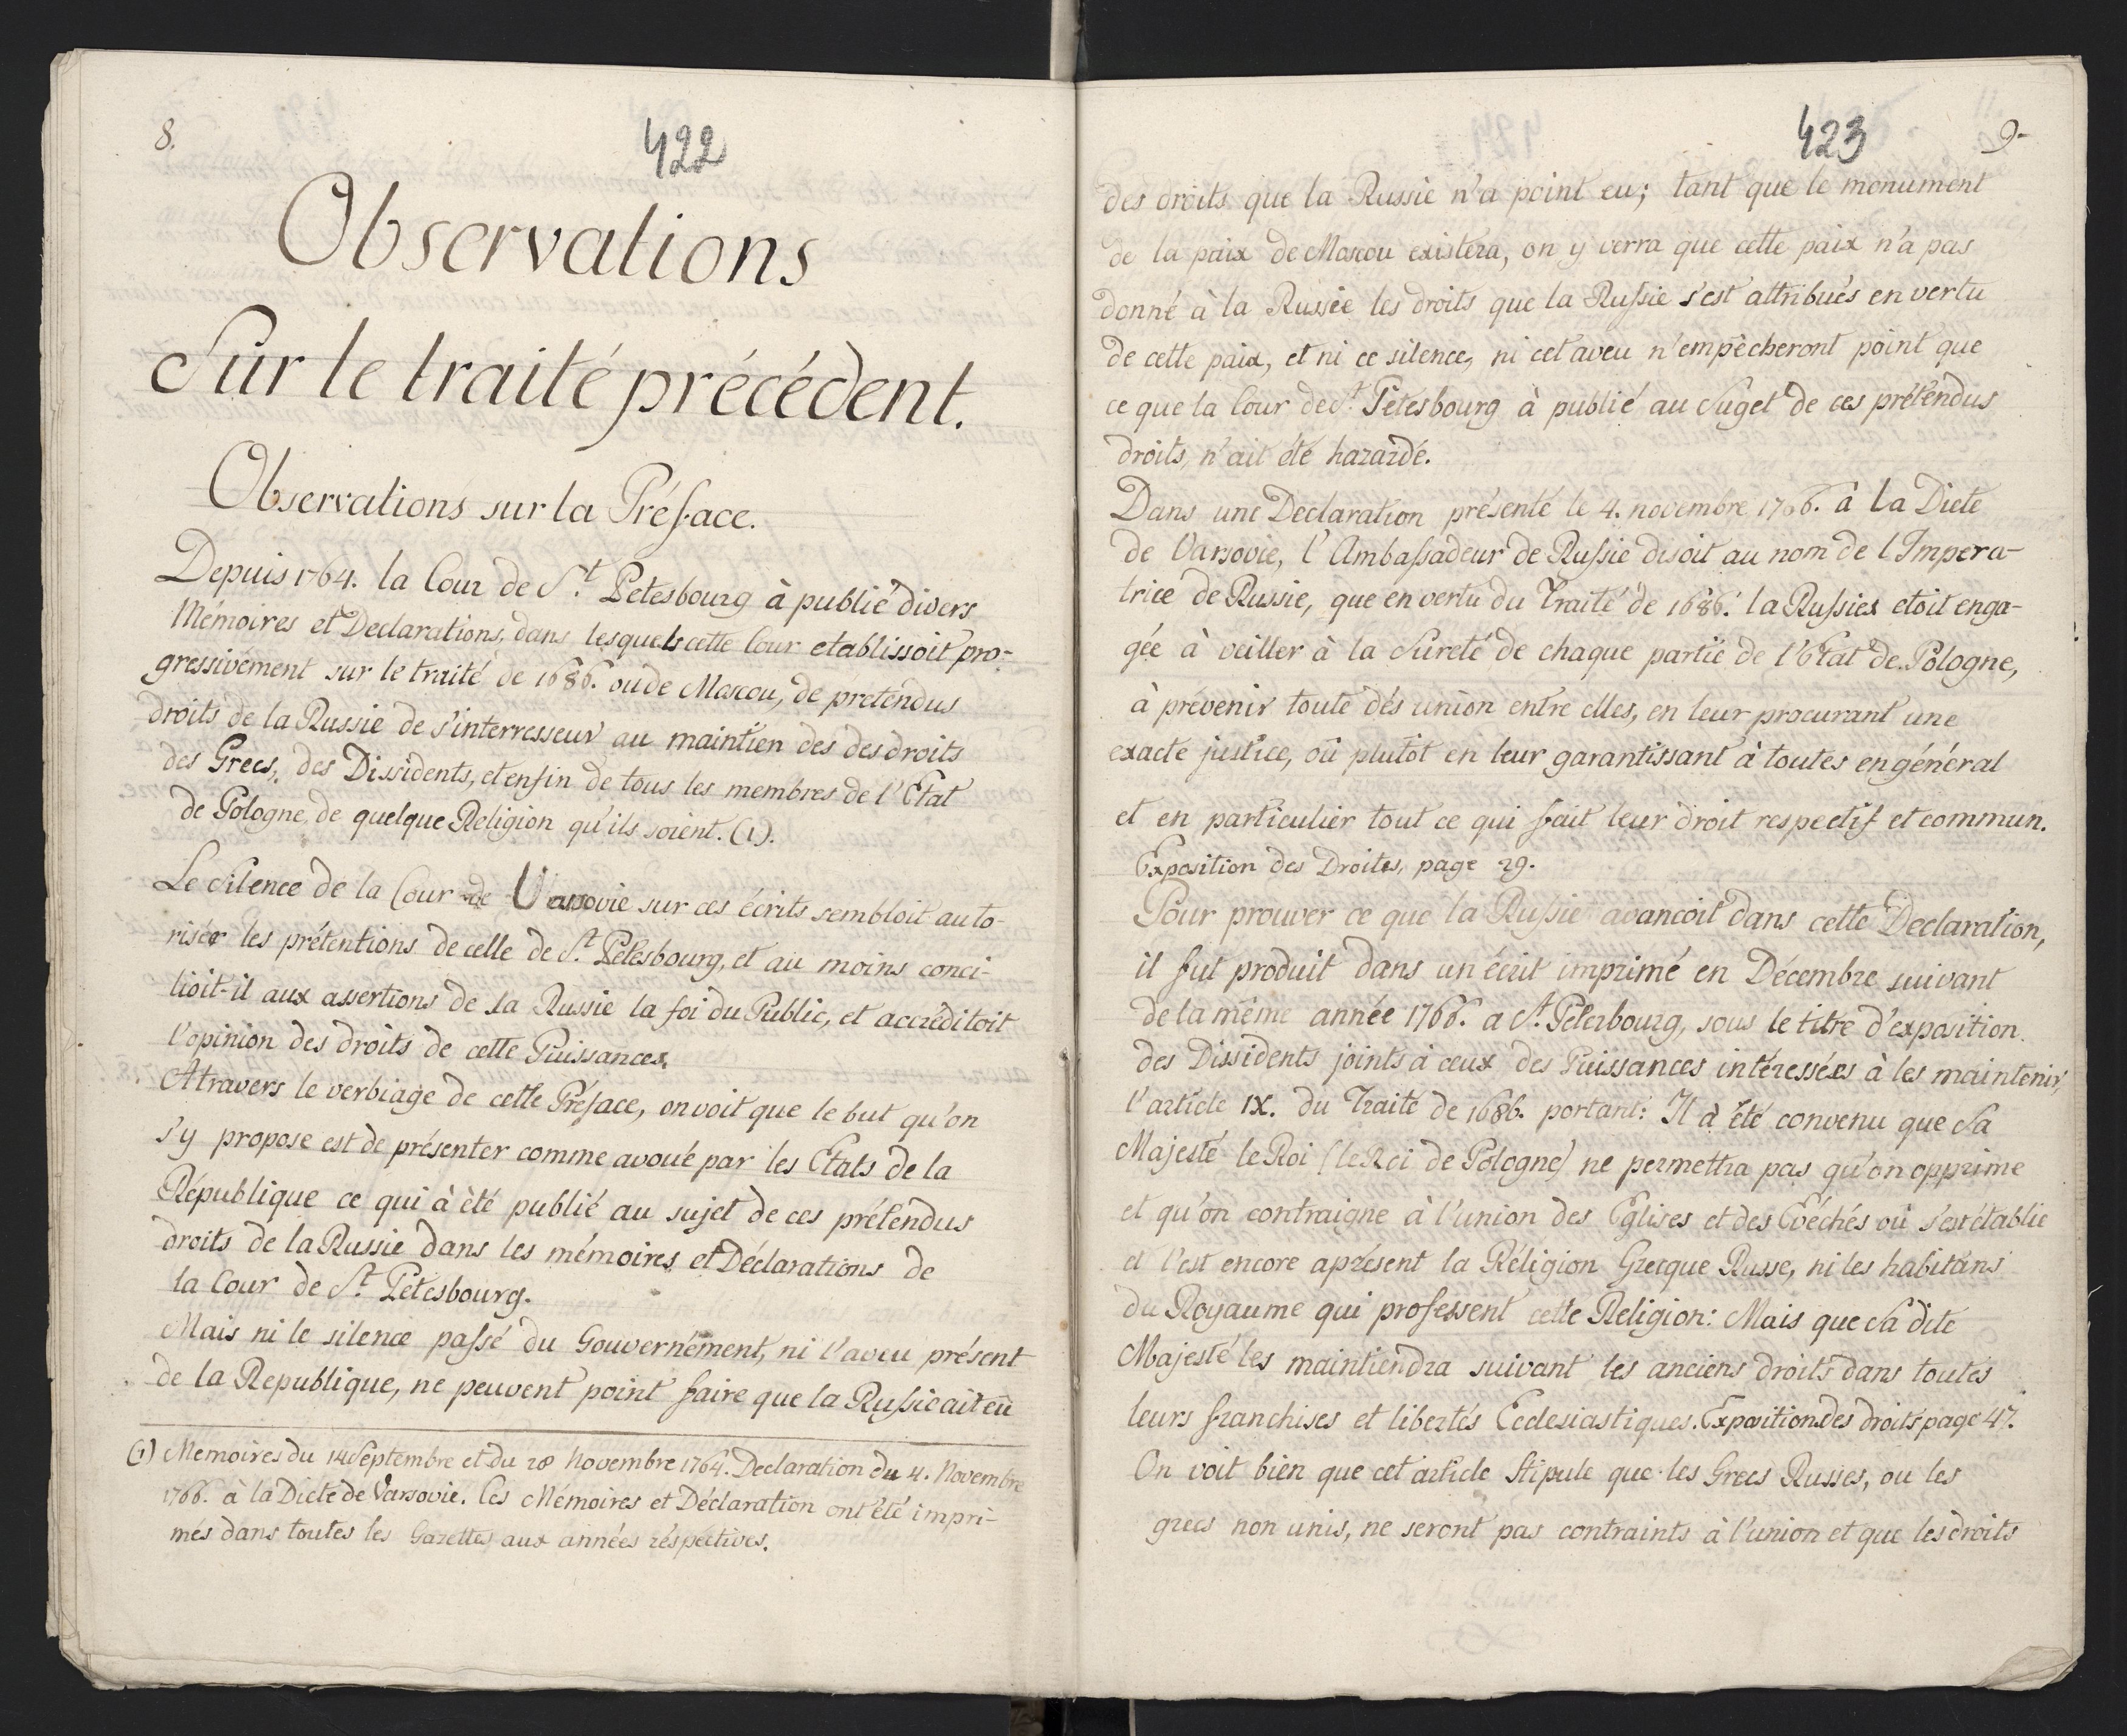 8.
422
Observations
Sur le traité précédent.
Observations sur la Préface.
Depuis 1764. la Cour de St. Petesbourg à publié divers
Mémoires et Declarations, dans lesquels cette Cour etablissoit pro-
gressivement sur le traité de 1686. ou de Moscou, de pretendus
droits de la Russie de s'interresseur au maintien des des droits
des Grecs, des Dissidents, et enfin de tous les membres de l'Etat
de Pologne, de quelque Religion qu'ils soient. (1).
Le Silence de la Cour de Varsovie sur ces écrits sembloit auto-
riser les prétentions de celle de St. Petesbourg, et au moins conci-
lioit-il aux assertions de la Russie la foi du Public, et accréditoit
l'opinion des droits de cette Puissance.
Atravers le verbiage de cette Préface, on voit que le but qu'on
s'y propose est de présenter comme avoué par les Etats de la
République ce qui à èté publié au sujet de ces prétendus
droits de la Russie dans les mémoires et Déclarations de
la Cour de St. Petesbourg.
Mais ni le silence passé du Gouvernément, ni l'aveu présent
de la Republique, ne peuvent point faire que la Russie ait eû
(1) Memoires du 14 Septembre et du 28 Novembre 1764. Declaration du 4. Novembre
1766. à la Diete de Varsovie. Ces Mémoires et Déclaration ont été impri-
més dans toutes les Gazettes aux années réspectives.
423
9.
des droits que la Russie n'a point eu; tant que le monument
de la paix de Moscou existera, on y verra que cette paix n'a pas
donné à la Russie les droits que la Russie s'est attribués en vertu
de cette paix, et ni ce silence, ni cet aveu n'empêcheront point que
ce que la Cour de St. Pétesbourg à publié au Suget de ces prétendus
droits, n'ait été hazardé.
Dans une Declaration présenté le 4. novembre 1766. à La Diete
de Varsovie, l'Ambassadeur de Russie disoit au nom de l'Impera-
trice de Russie, que en vertu du Traité de 1686. la Russie etoit enga-
gée à veiller à la Sureté de chaque partie de l'Etat de Pologne,
à prévenir toute dés union entre elles, en leur procurant une
exacte justice, où plutôt en leur garantissant à toutes en général
et en particulier tout ce qui fait leur droit respectif et commun.
Exposition des Droites, page 29.
Pour prouver ce que la Russie avancoit dans cette Declaration,
il fut produit dans un écrit imprimé en Décembre suivant
de la même année 1766. a St. Peterbourg, sous le titre d'exposition
des Dissidents joints à ceux des Puissances intéressées à les maintenir,
l'article IX. du Traité de 1686. portant: Il à été convenu que Sa
Majesté le Roi (le Roi de Pologne) ne permettra pas qu'on opprime
et qu'on contraigne à l'union des Eglises et des Evéchés où s'est établie
et l'est encore aprésent la Réligion Grecque Russe, ni les habitans
du Royaume qui professent cette Religion: Mais que Sa dite
Majesté les maintiendra suivant les anciens droits dans toutes
leurs franchises et libertés Ecclesiastiques. Exposition des droits page 47.
On voit bien que cet article Stipule que les Grecs Russes, ou les
grecs non unis, ne seront pas contraints à l'union et que les droits